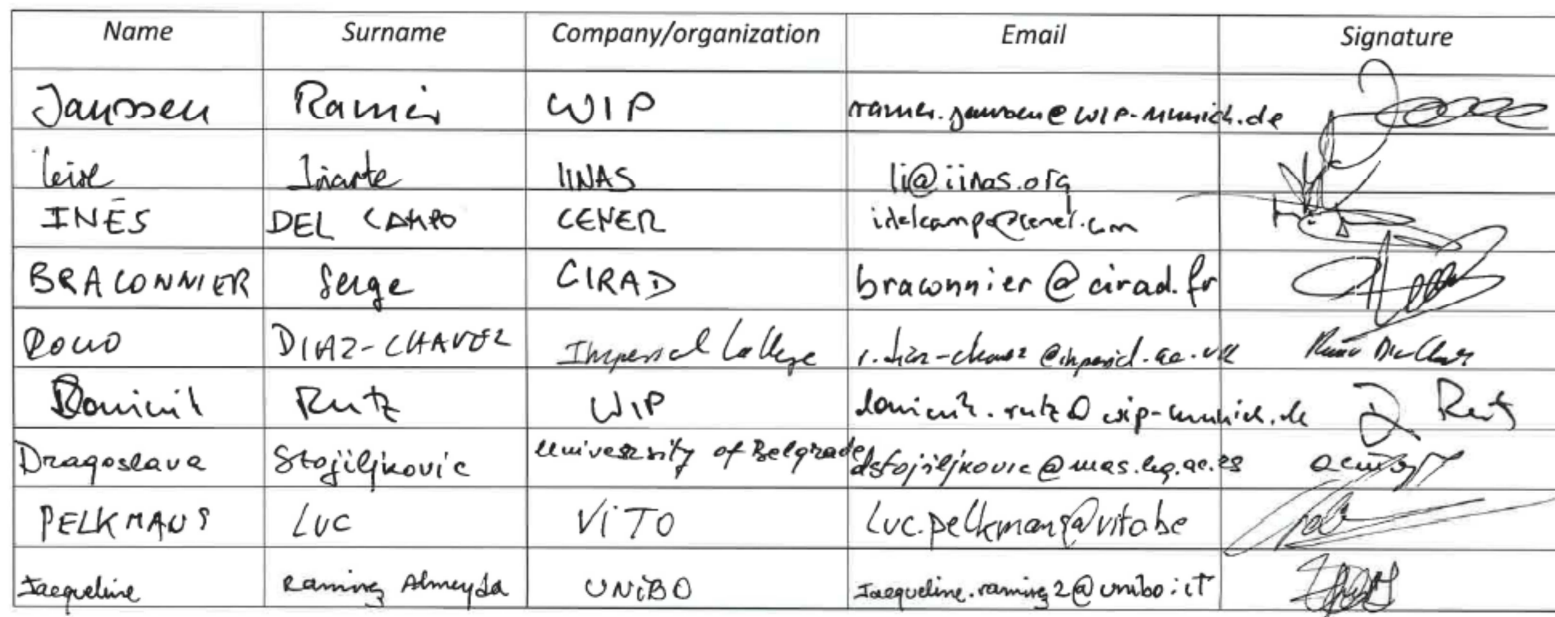 Name Surname Company/organization Email Signature
Janssen Rainer WIP rainer.janssen@wip-munich.de
Leire Iriarte IINAS li@iinas.org
INÉS DEL CAMPO CENER idelcampo@cener.com
BRACONNIER Serge CIRAD braconnier@cirad.fr
ROCIO DIAZ-CHAVEZ Imperial College r.diaz-chavez@imperial.ac.uk
Dominik Rutz WIP dominik.rutz@wip-munich.de D Rutz
Dragoslava Stojiljkovic University of Belgrade dstojiljkovic@mas.bg.ac.rs
PELKMANS LUC VITO luc.pelkmans@vito.be
Jacqueline Ramirez Almeyda UNIBO Jacqueline.ramirez2@unibo.it